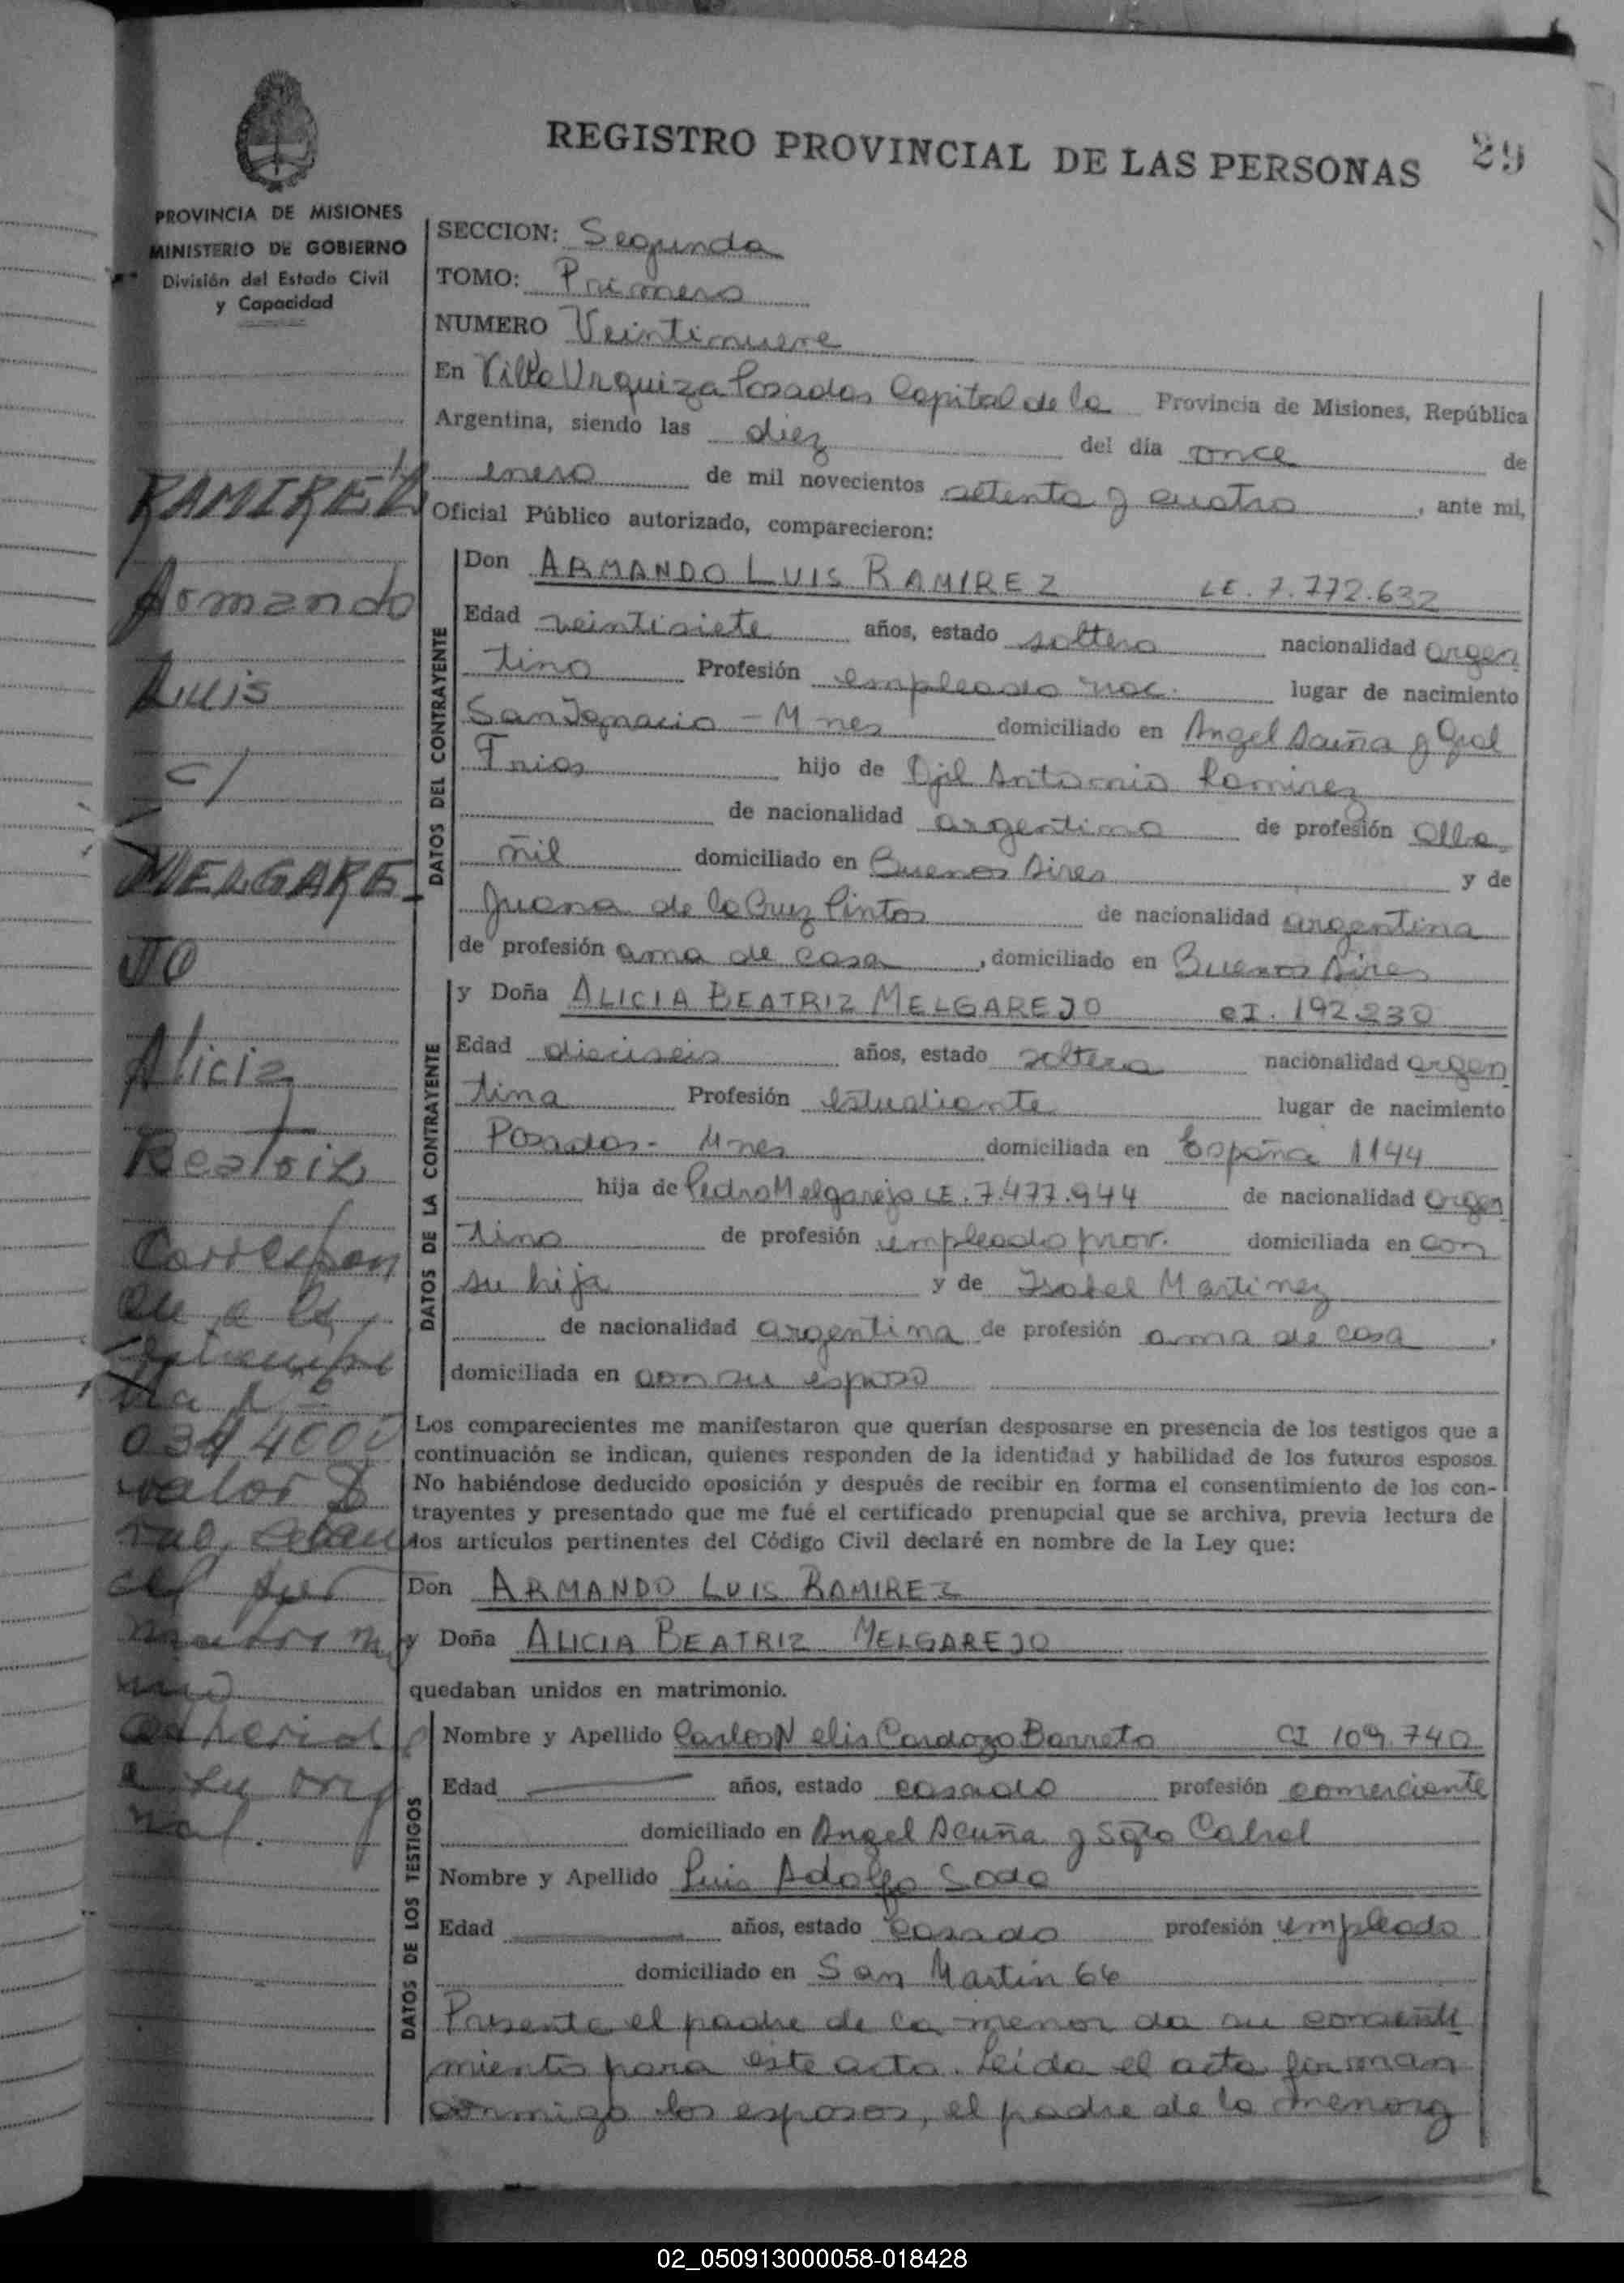 REGISTRO PROVINCIAL DE LAS PERSONAS
29
PROVINCIA DE MISIONES
MINISTERIO DE GOBIERNO
División del Estado Civil
y Capacidad
RAMIREZ
Armando
Luis
c/
MELGARE-
JO
Alicia
Beatriz
Correspon
de a la
Estampi
lla Nº
valor $
mal.
SECCION: Segunda
TOMO: Primero
NUMERO Veintinueve
En Villa Urquiza Posadas Capital de la Provincia de Misiones, República
Argentina, siendo las diez del día once de
enero de mil novecientos setenta y cuatro, ante mi,
Oficial Público autorizado, comparecieron:
DATOS DEL CONTRAYENTE
Don ARMANDO LUIS RAMIREZ LE. 7.772.632
Edad veintisiete años, estado soltero nacionalidad argen
tino Profesión empleado nac. lugar de nacimiento
San Ignacio - Mnes domiciliado en Angel Acuña y Gral
Frias hijo de Antonio Ramirez
de nacionalidad argentina de profesión alba
ñil domiciliado en Buenos Aires y de
Juana de la Cruz Pintos de nacionalidad argentina
de profesión ama de casa, domiciliado en Buenos Aires
DATOS DE LA CONTRAYENTE
y Doña ALICIA BEATRIZ MELGAREJO CI. 192.230
Edad dieciseis años, estado soltera nacionalidad argen
tina Profesión estudiante lugar de nacimiento
Posadas - Mnes domiciliada en España 1144
hija de Pedro Melgarejo LE. 7.477.944 de nacionalidad argen
tino de profesión empleado prov. domiciliada en con
su hija y de Isabel Martinez
de nacionalidad argentina de profesión ama de casa,
domiciliada en con su esposo
Los comparecientes me manifestaron que querían desposarse en presencia de los testigos que a
continuación se indican, quienes responden de la identidad y habilidad de los futuros esposos.
No habiéndose deducido oposición y después de recibir en forma el consentimiento de los con-
trayentes y presentado que me fué el certificado prenupcial que se archiva, previa lectura de
los artículos pertinentes del Código Civil declaré en nombre de la Ley que:
Don ARMANDO LUIS RAMIREZ
y Doña ALICIA BEATRIZ MELGAREJO
quedaban unidos en matrimonio.
DATOS DE LOS TESTIGOS
Nombre y Apellido Carlos Nelis Cardozo Barreto CI 109.740
Edad años, estado casado profesión comerciante
domiciliado en Angel Acuña y Sgto Cabral
Nombre y Apellido Luis Adolfo Sodo
Edad años, estado casado profesión empleado
domiciliado en San Martin 66
Presente el padre de la menor da su consenti
miento para este acto. Leída el acta firman
conmigo los esposos, el padre de la menor y
02_050913000058-018428